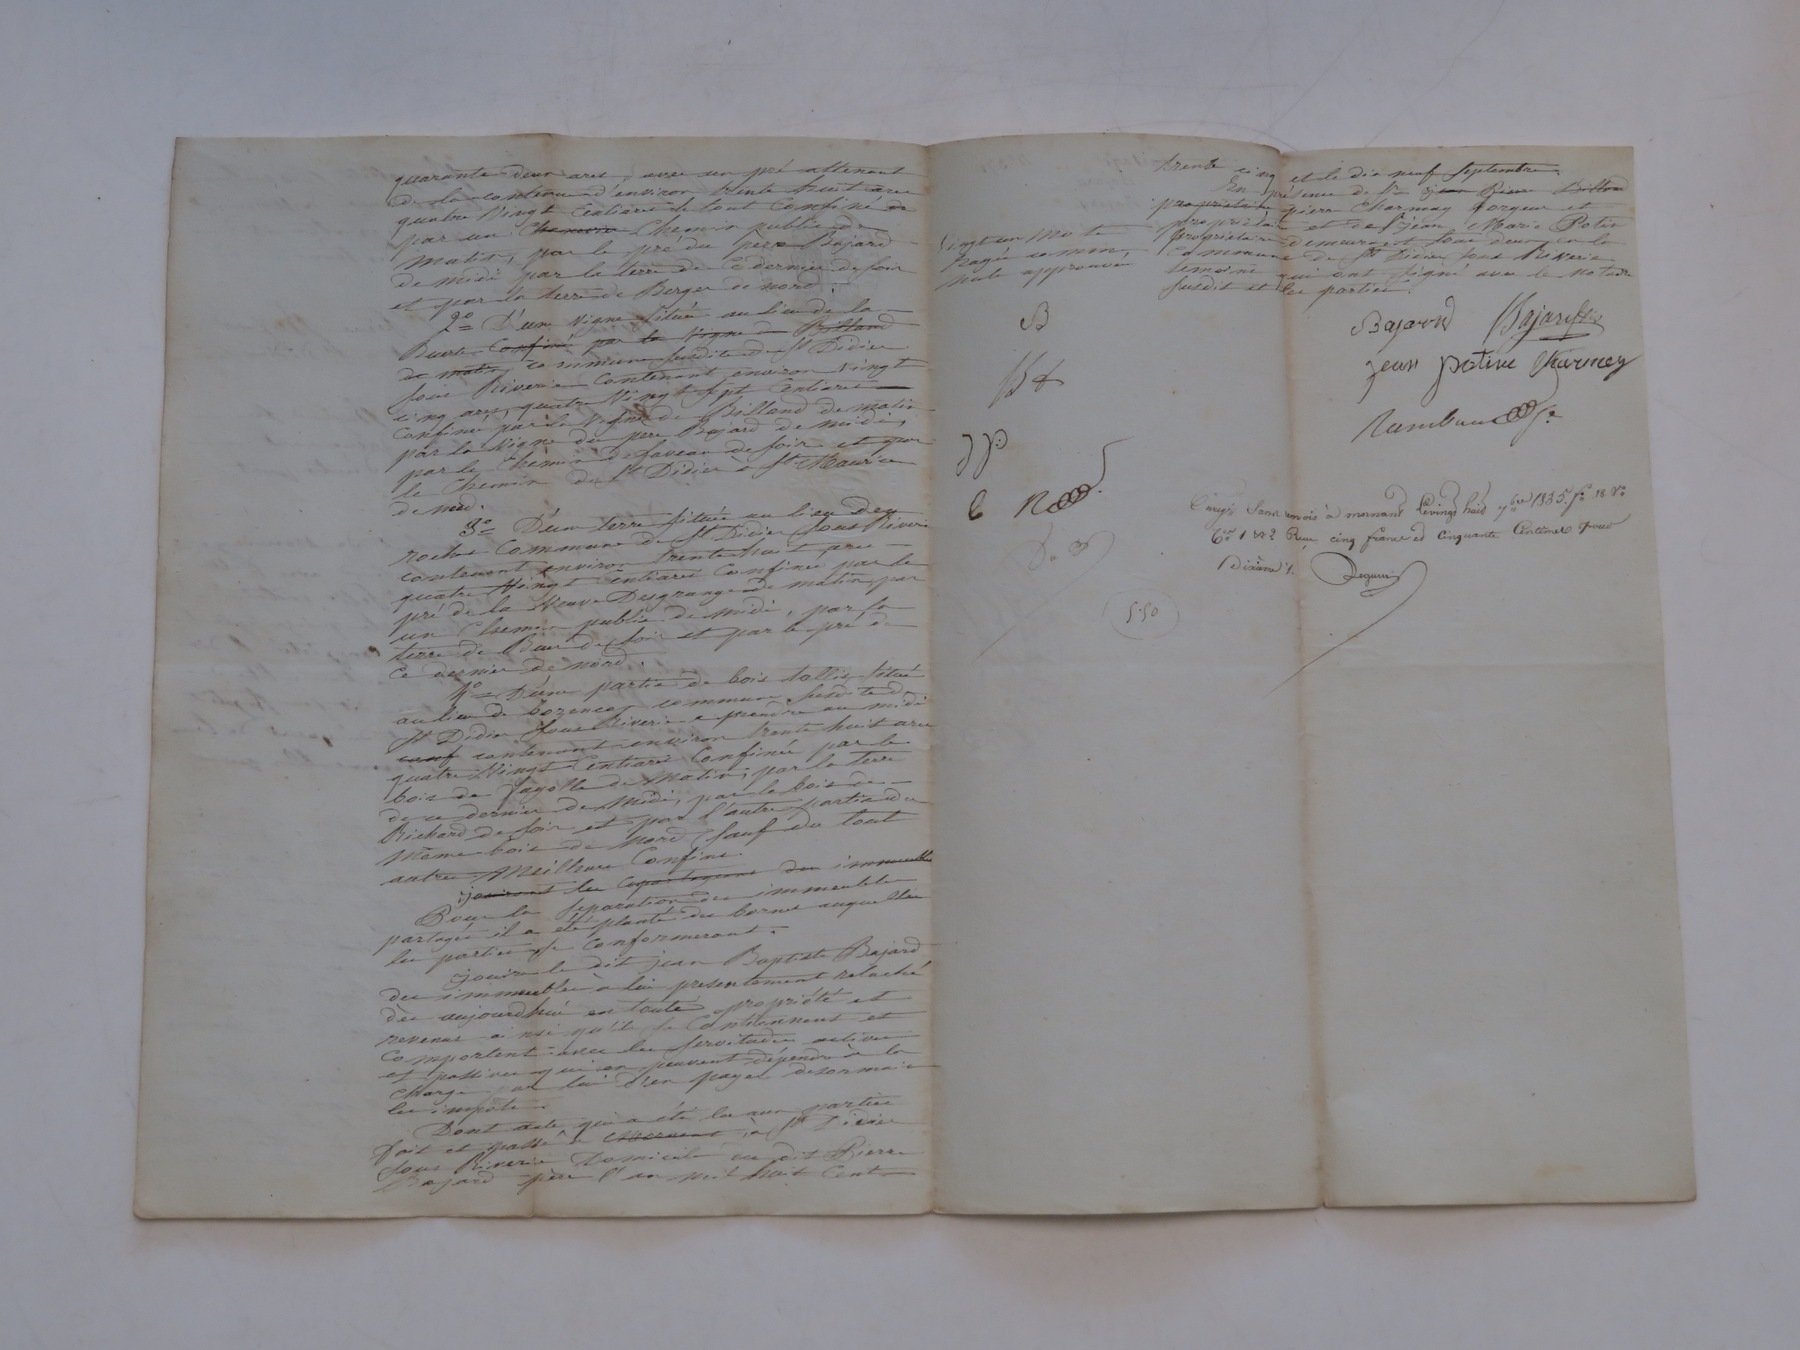 quarante deux ares, avec un pré attenant
de la contenue d'environ trente huit ares
quatre Vingt Centiares le tout Confiné de
par un Chemin Chemin public de
matin, par le pré du père Bajard
de midi par la terre de Ce dernier de soir
et par la terre de Berger de nord.
2° D'une vigne située au lieu de la
Confiné par la Vigne de Billand
de matin, commune susdite de St Didier
sous Riverie Contenant environ Vingt
cinq ares, quatre Vingt sept Centiares
Confinée par la Vigne de Billand de matin
par la Vigne du père Bajard de midi,
par le Chemin de de soir et par
le Chemin de St Didier à St Maurice
de nord.
3° D'une terre située au lieu des
roches Commune de St Didier sous Riverie
contenant environ trente huit ares
quatre Vingt Centiares Confinée par le
pré de la Veuve Desgrange de matin, par
un Chemin public de midi, par la
terre de de soir et par le pré de
Ce dernier de nord.
4° D'une partie de bois taillis située
au lieu de commune susdite de
St Didier sous Riverie a prendre au midi
contenant environ trente huit ares
quatre Vingt Centiares Confinée par le
bois de Fayolle de Matin, par la terre
de ce dernier de Midi, par le bois de
Richard de soir et par l'autre partie du
même bois de Nord sauf du tout
autre Meilleur Confins.
jouiront les Copartageans des immeubles
Pour la séparation des immeubles
partagés il a été planté des bornes auquelles
les parties se Conformeront.
jouira le dit jean Baptiste Bajard
des immeubles à lui présentement relaché
dès aujourdhui en toute propriété et
revenus ainsi qu'ils se Contiennent et
Comportent avec les servitudes actives
et passives qui en peuvent dépendre à la
charge par lui d'en payer désormais
les impôts.
Dont acte qui a été lu aux parties
fait et passé à à St Didier
sous Riverie Domicile du dit Pierre
Bajard père l'an mil huit Cent
trente cinq et le dix neuf Septembre.
En présence de Sr jean Pierre Billand
propriétaire pierre Charmey forgeur et
propriétaire et de Sr jean Marie Potin
propriétaire demeurant tous deux en la
Commune de St Didier sous Riverie
temoins qui ont signé avec le Notaire
susdit et les parties.
Vingt un Mots
rayés comme
nuls approuvés
B
B
j p
C R
Bajard Bajard fils
jean potin Charmey
Enregé sans renvois à mornant le vingt huit 7bre 1835 fo 18 Vo
Ces 1 et 2 Reçu cinq francs et Cinquante Centimes pour
Dixième %.
5.50